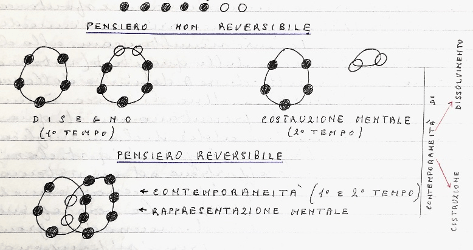 PENSIERO NON REVERSIBILE
DISEGNO
(1º TEMPO)
COSTRUZIONE MENTALE
(2º TEMPO)
PENSIERO REVERSIBILE
← CONTEMPORANEITÀ (1º E 2º TEMPO)
← RAPPRESENTAZIONE MENTALE
CONTEMPORANEITÀ DI
DISSOLVIMENTO
COSTRUZIONE